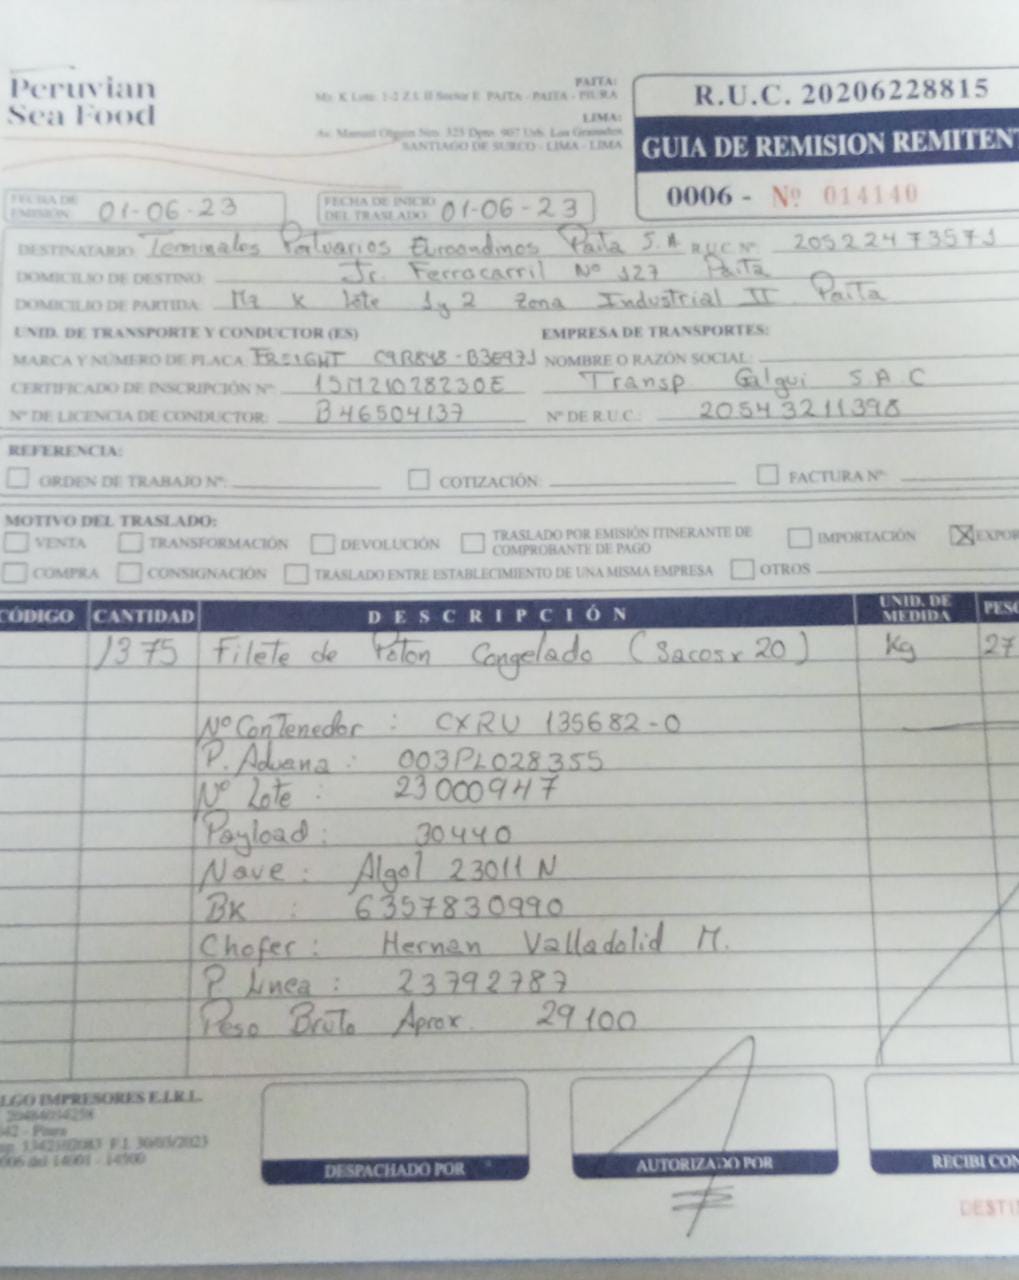 Peruvian
Sea Food
PAITA:
Mz. K Lote. 1-2 Z.I. II Sector E PAITA - PAITA - PIURA
LIMA:
Av. Manuel Olguin Nro. 325 Dpto. 907 Urb. Los Granados
SANTIAGO DE SURCO - LIMA - LIMA
R.U.C. 20206228815
GUIA DE REMISION REMITENT
0006 - Nº 014140
FECHA DE EMISIÓN: 01-06-23
FECHA DE INICIO DEL TRASLADO: 01-06-23
DESTINATARIO: Terminales Portuarios Euroandinos Paita S.A R.U.C. Nº: 20522473571
DOMICILIO DE DESTINO: Jr. Ferrocarril Nº 127 Paita
DOMICILIO DE PARTIDA: Mz K lote 1y2 Zona Industrial II Paita
UNID. DE TRANSPORTE Y CONDUCTOR (ES)
EMPRESA DE TRANSPORTES:
MARCA Y NÚMERO DE PLACA FREIGHT C9R848-B3E971 NOMBRE O RAZÓN SOCIAL:
CERTIFICADO DE INSCRIPCIÓN Nº 15M21028230E Transp Galgui S.A.C
Nº DE LICENCIA DE CONDUCTOR: B46504137 Nº DE R.U.C.: 20543211398
REFERENCIA:
ORDEN DE TRABAJO Nº: COTIZACIÓN: FACTURA Nº
MOTIVO DEL TRASLADO:
VENTA TRANSFORMACIÓN DEVOLUCIÓN TRASLADO POR EMISIÓN ITINERANTE DE COMPROBANTE DE PAGO IMPORTACIÓN EXPOR
COMPRA CONSIGNACIÓN TRASLADO ENTRE ESTABLECIMIENTO DE UNA MISMA EMPRESA OTROS
CÓDIGO CANTIDAD DESCRIPCIÓN UNID. DE MEDIDA PESO
1375 Filete de Poton Congelado (Sacos x 20) Kg 27
Nº Contenedor : CXRU 135682-0
P. Aduana : 003PL028355
Nº Lote : 23000947
Payload : 30440
Nave : Algol 23011 N
BK : 6357830990
Chofer : Hernan Valladolid M.
P Linea : 23792787
Peso Bruto Aprox. 29100
LGO IMPRESORES E.I.R.L.
- Piura
F.I. 30/03/2023
0006 del 14001 - 14500
DESPACHADO POR
AUTORIZADO POR
RECIBI CON
DESTI